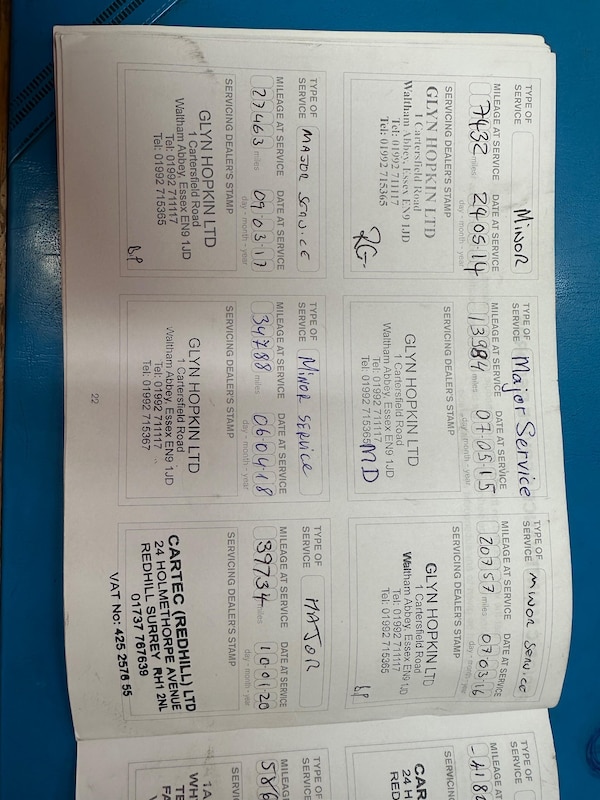 TYPE OF SERVICE Minor
MILEAGE AT SERVICE DATE AT SERVICE
7432 miles 24 05 14
day - month - year
SERVICING DEALER'S STAMP
GLYN HOPKIN LTD
1 Cartersfield Road
Waltham Abbey, Essex EN9 1JD
Tel: 01992 711117
Tel: 01992 715365
TYPE OF SERVICE Major Service
MILEAGE AT SERVICE DATE AT SERVICE
13984 miles 07 05 15
day - month - year
SERVICING DEALER'S STAMP
GLYN HOPKIN LTD
1 Cartersfield Road
Waltham Abbey, Essex EN9 1JD
Tel: 01992 711117
Tel: 01992 715365 MD
TYPE OF SERVICE minor service
MILEAGE AT SERVICE DATE AT SERVICE
20757 miles 07 03 16
day - month - year
SERVICING DEALER'S STAMP
GLYN HOPKIN LTD
1 Cartersfield Road
Waltham Abbey, Essex EN9 1JD
Tel: 01992 711117
Tel: 01992 715365
BP
TYPE OF SERVICE MAJOR SERVICE
MILEAGE AT SERVICE DATE AT SERVICE
27463 miles 09 03 17
day - month - year
SERVICING DEALER'S STAMP
GLYN HOPKIN LTD
1 Cartersfield Road
Waltham Abbey, Essex EN9 1JD
Tel: 01992 711117
Tel: 01992 715365
BP
TYPE OF SERVICE Minor Service
MILEAGE AT SERVICE DATE AT SERVICE
34788 miles 06 04 18
day - month - year
SERVICING DEALER'S STAMP
GLYN HOPKIN LTD
1 Cartersfield Road
Waltham Abbey, Essex EN9 1JD
Tel: 01992 711117
Tel: 01992 715367
TYPE OF SERVICE MAJOR
MILEAGE AT SERVICE DATE AT SERVICE
39734 miles 10 01 20
day - month - year
SERVICING DEALER'S STAMP
CARTEC (REDHILL) LTD
24 HOLMETHORPE AVENUE
REDHILL SURREY RH1 2NL
01737 767639
VAT No: 425 2576 55
22
TYPE OF SERVICE
MILEAGE
418
SERVICING
CAR
24 H
RED
TYPE OF SERVICE
MILEAGE
586
SERVIC
1A
WH
TE
FA